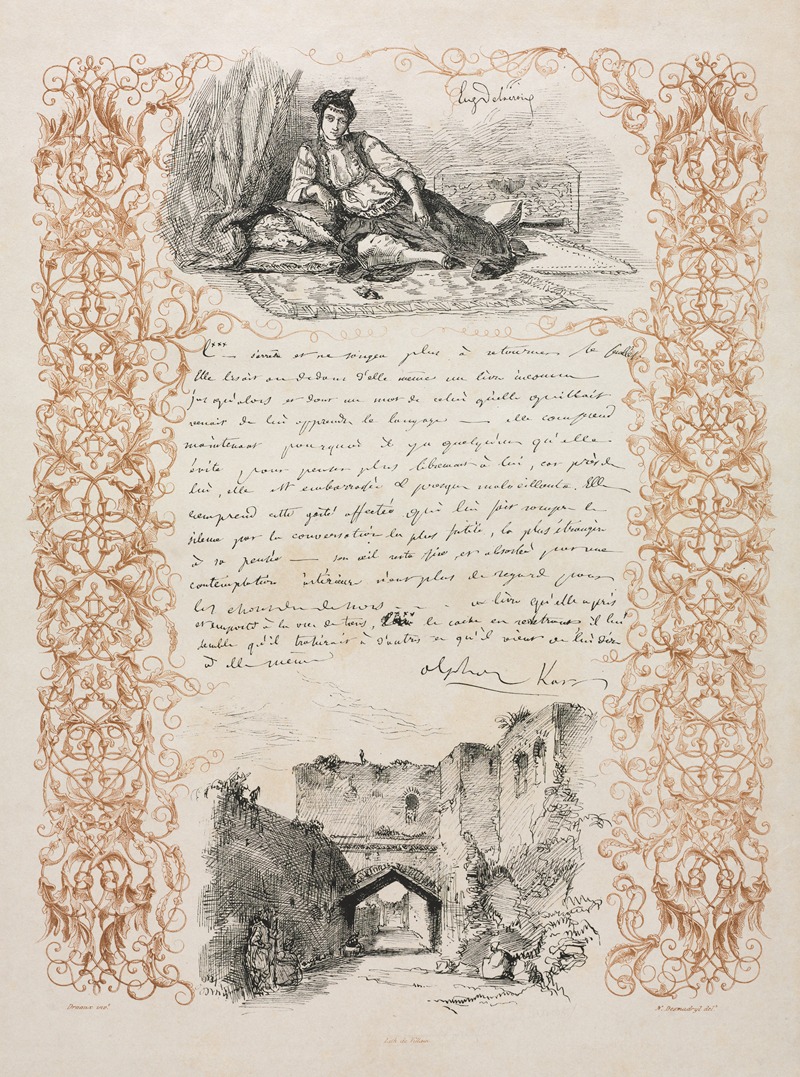 Eug Delacroix
C*** s'arrête et ne songea plus à retourner le feuillet
Elle lisoit au dedans d'elle même un livre inconnu
jusqu'alors et dont un mot de celui qu'elle
venait de lui apprendre le langage — elle comprend
maintenant pourquoi il y a quelqu'un qu'elle
évite pour penser plus librement à lui, car près de
lui, elle est embarrassée & presque malveillante. Elle
comprend cette gaité affectée qui lui fait rompre le
silence par la conversation la plus futile, la plus étrangère
à sa pensée — son œil reste fixe et absorbé par une
contemplation intérieure n'ont plus de regard pour
les choses du dehors — — — — le livre qu'elle a pris
et emporté à la vue de tous, le cache en rentrant il lui
semble qu'il trahirait à d'autres ce qu'il vient de lui dire
à elle même
Alphonse Karr
N. Desmadryl del.